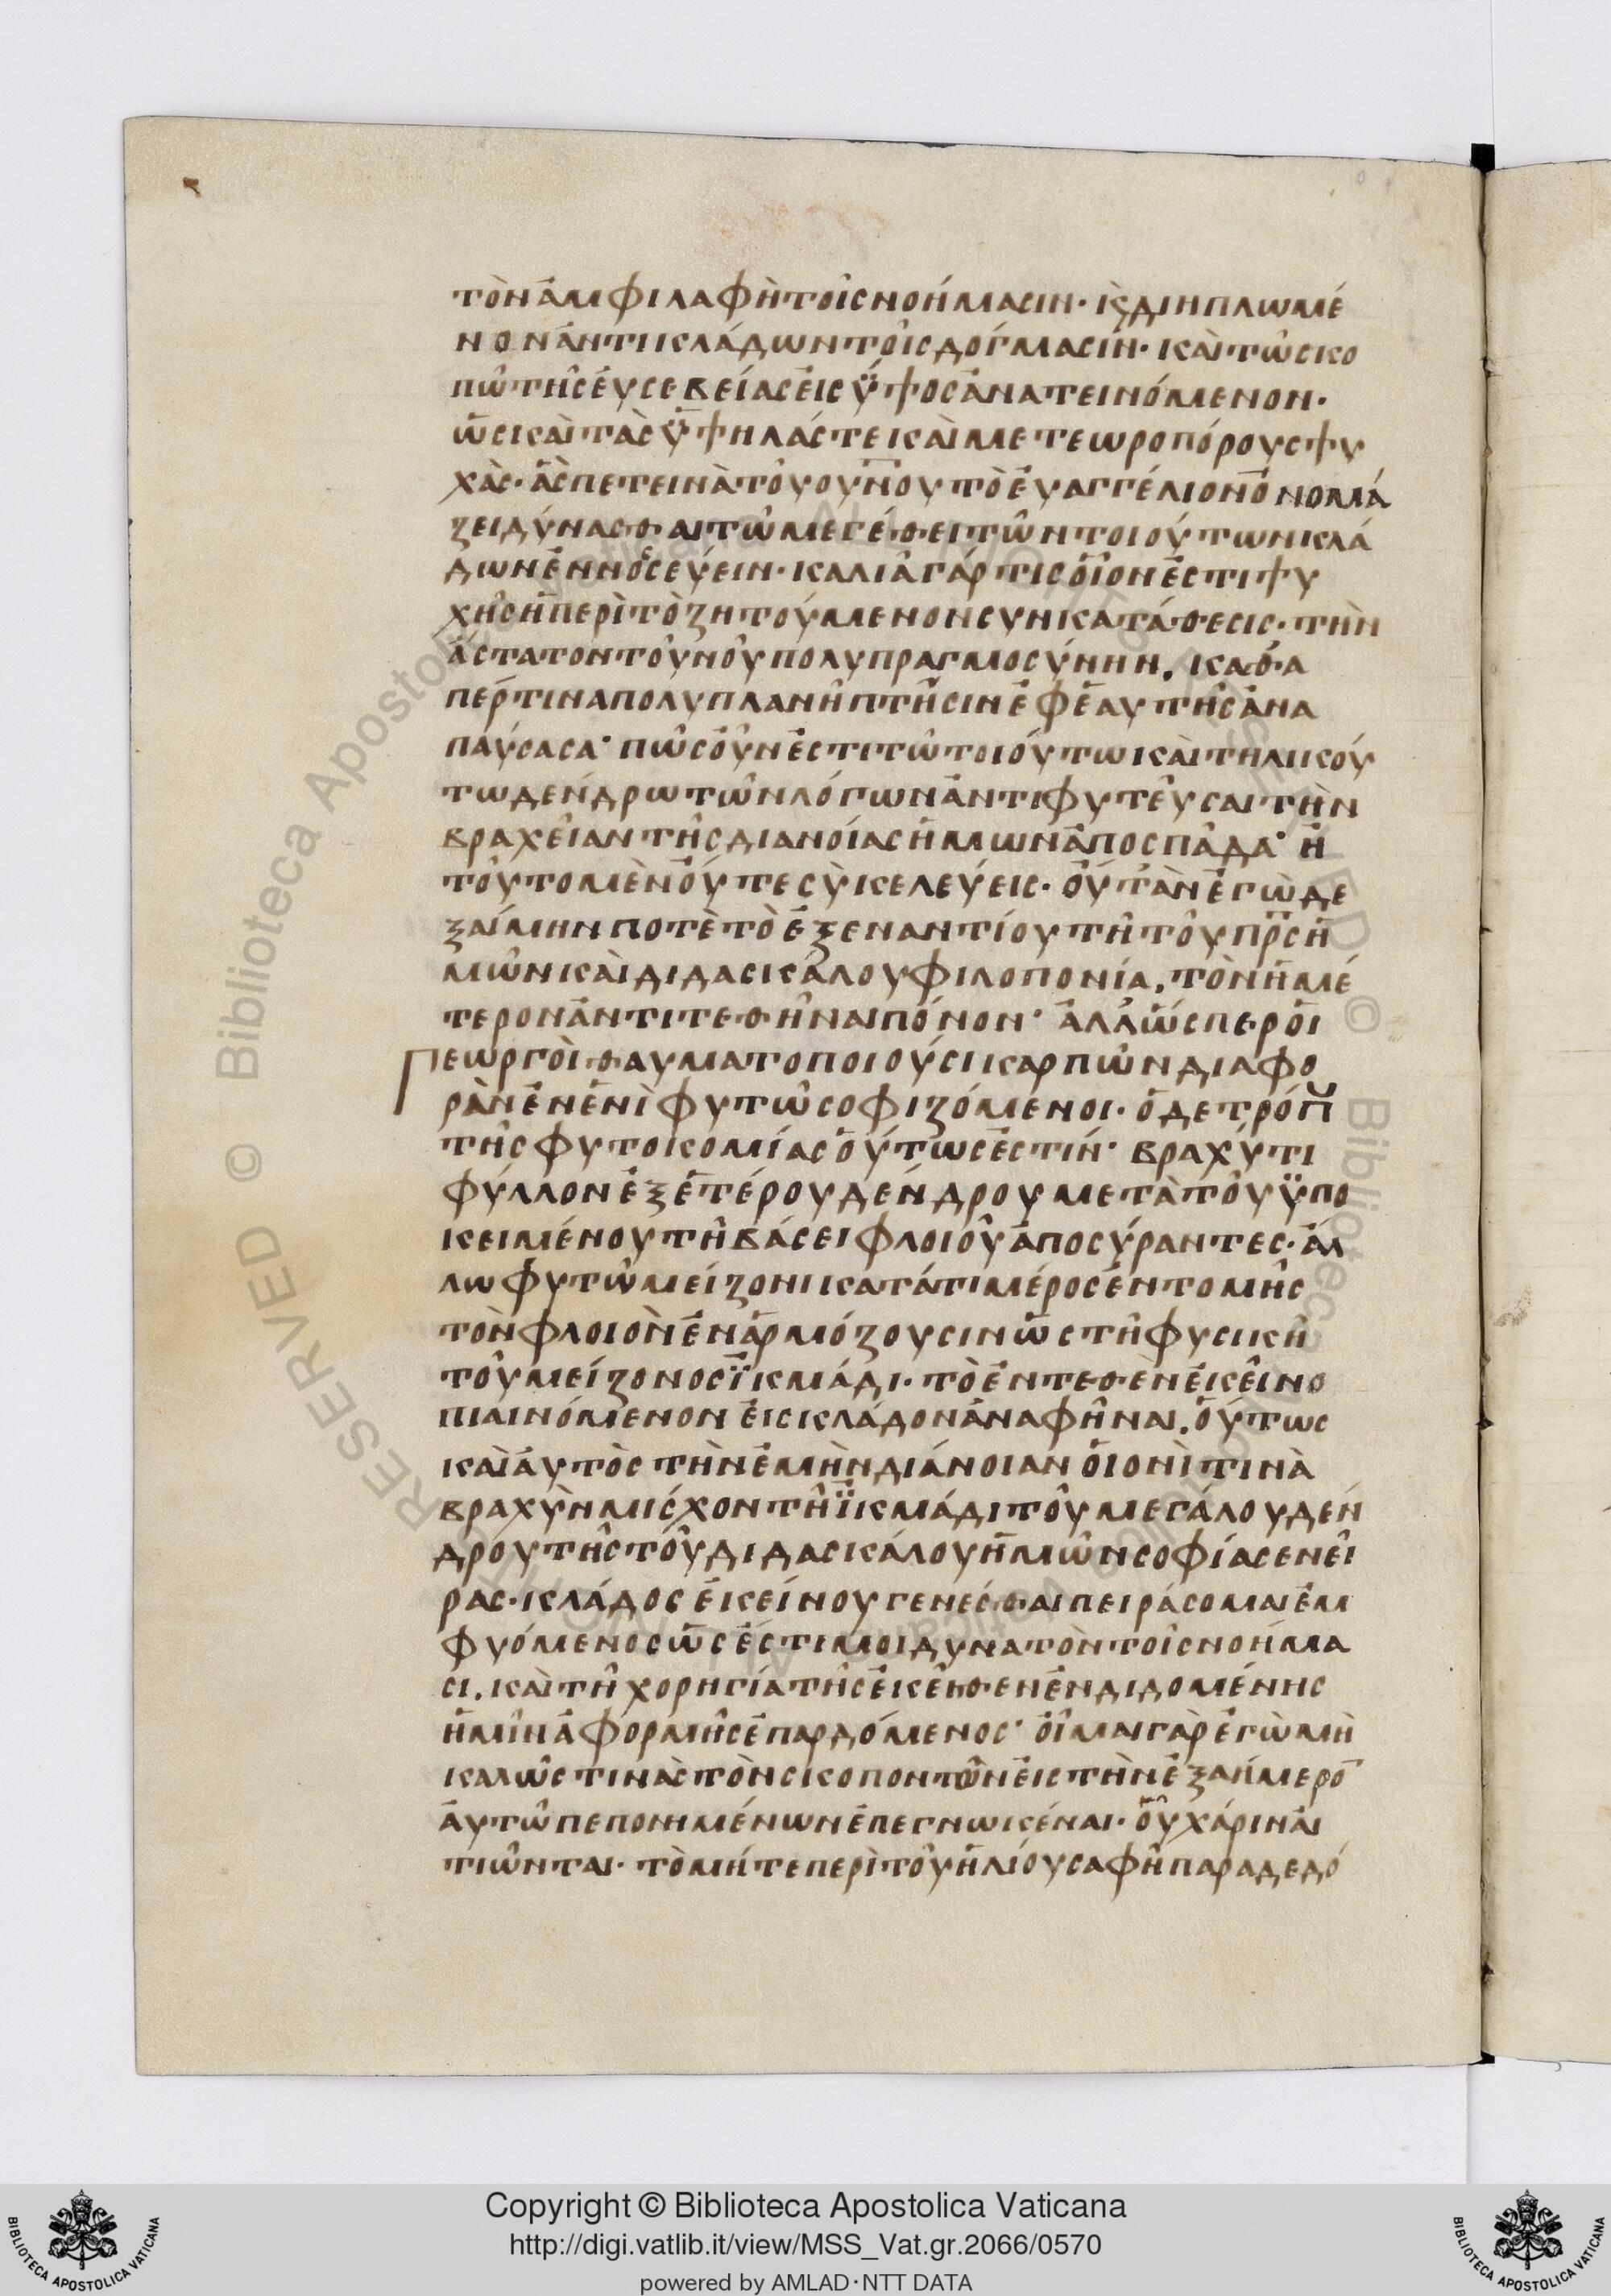 τὸν ἀμφιλαφῆ τοῖς νοήμασιν· κ(αὶ) διηπλωμέ
νον ἀντὶ κλάδων τοῖς δόγμασιν· καὶ τῶ σκο
πῶ τῆς ἐυσεβείας ἐις ὕψος ἀνατεινόμενον·
ὡς καὶ τὰς ὑψηλάς τε καὶ μετεωροπόρους ψυ
χὰς· ἃς πετεινὰ τοῦ ου̅νου τὸ ἐυαγγέλιον ὀνομά
ζει δύνασθαι τῶ μεγέθει τῶν τοιούτων κλά
δων ἐννοσεύειν· καλιὰ γάρ τις οἷον ἐστι ψυ
χῆς ἡ περὶ τὸ ζητούμενον συνκατάθεσις· τὴν
ἄστατον τοῦ νοῦ πολυπραγμοσύνην, καθά
πέρ τινα πολυπλανῆ πτῆσιν ἐφ ἑαυτῆς ἀνα
παύσασα· πῶς οὖν ἐστι τῶ τοιούτω καὶ τηλικού
τω δένδρω τῶν λόγων ἀντιφυτεῦσαι τὴν
βραχεῖαν τῆς διανοίας ἡμων ἀποσπάδα· ἢ
τοῦτο μὲν οὔτε σὺ κελεύεις· οὔτ ἂν ἐγὼ δε
ξαίμην ποτὲ τὸ ἐξεναντίου τῆ τοῦ π̅ρ̅ς ἡ
μῶν καὶ διδασκάλου φιλοπονία, τὸν ἡμέ
τερον ἀντιτεθῆναι πόνον· ἀλλ ὥσπερ οἱ
Γεωργοὶ θαυματοποιοῦσι καρπῶν διαφο
ρὰν ἐν ἑνὶ φυτῶ σοφιζόμενοι· ὁ δε τρόπ
τῆς φυτοκομίας οὕτως ἐστίν· βραχύ τι
φύλλον ἐξ ἑτέρου δένδρου μετὰ τοῦ ὑπο
κειμένου τῆ βάσει φλοιοῦ ἀποσύραντες· ἄλ
λω φυτῶ μείζονι κατά τι μέρος ἐντομῆς
τὸν φλοιὸν ἐναρμόζουσιν ὡς τῆ φυσικῆ
τοῦ μείζονος ϊκμάδι· τὸ ἐντεθὲν ἐκεῖνο
πιαινόμενον ἐις κλάδον ἀναφῆναι, οὕτως
καὶ ἀυτὸς τὴν ἐμὴν διάνοιαν οἱονὶ τινὰ
βραχὺν μίσχον τῆ ϊκμάδι τοῦ μεγάλου δέν
δρου τῆς τοῦ διδασκάλου ἡμῶν σοφίας ενεί
ρας· κλάδος ἐκείνου γενέσθαι πειράσομαι ἐμ
φυόμενος ὡς ἐστι μοι δυνατὸν τοῖς νοήμα
σι, καὶ τῆ χορηγία τῆς ἐκεῖθεν ἐνδιδομένης
ἡμῖν ἀφορμῆς ἐπαρδόμενος· οἶμαι γὰρ ἐγὼ μὴ
καλῶς τινὰς τὸν σκοπον τῶν ἐις τὴν ἐξαήμερο̅
ἀυτῶ πεπονημένων ἐπεγνωκέναι· οὗ χάριν ἀι
τιῶνται· τὸ μήτε περὶ τοῦ ἡλίου σαφῆ παραδεδό
Copyright © Biblioteca Apostolica Vaticana
http://digi.vatlib.it/view/MSS_Vat.gr.2066/0570
powered by AMLAD·NTT DATA